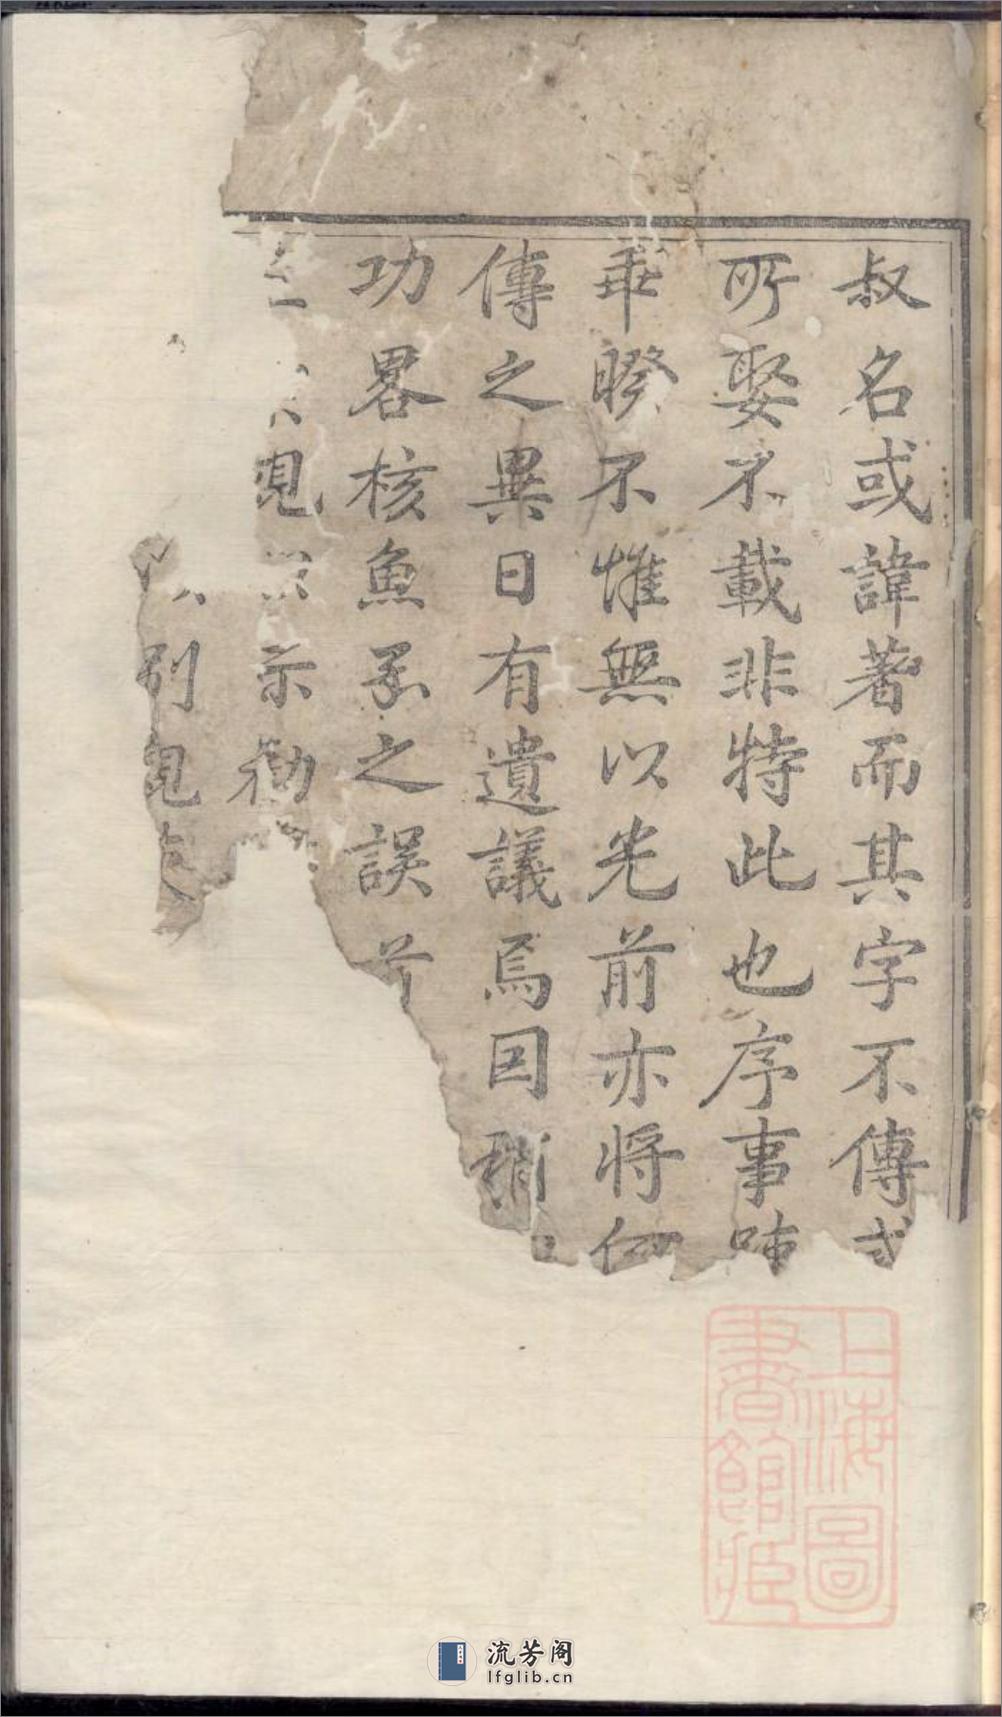 叔名或諱著而其字不傳
所娶不載非特此也序事
乖暌不惟無以光前亦將
傳之異日有遺議焉因稍
功畧核魚豕之誤
見示勸
別
上海圖
書館藏
流芳阁
lfglib.cn